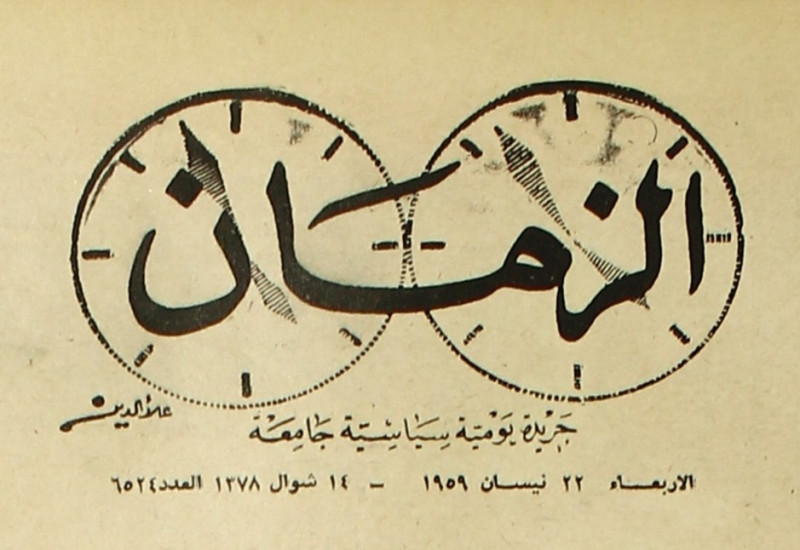 الزمان
علاء الدين
جريدة يومية سياسية جامعة
الاربعاء ٢٢ نيسان ١٩٥٩ - ١٤ شوال ١٣٧٨ العدد ٦٥٢٤